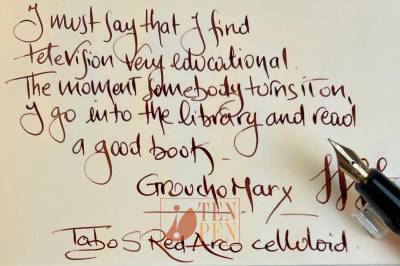 I must say that I find
television very educational.
The moment somebody turns it on,
I go into the library and read
a good book -
Groucho Marx
TEN
PEN
Tabo S Red Arco celluloid.